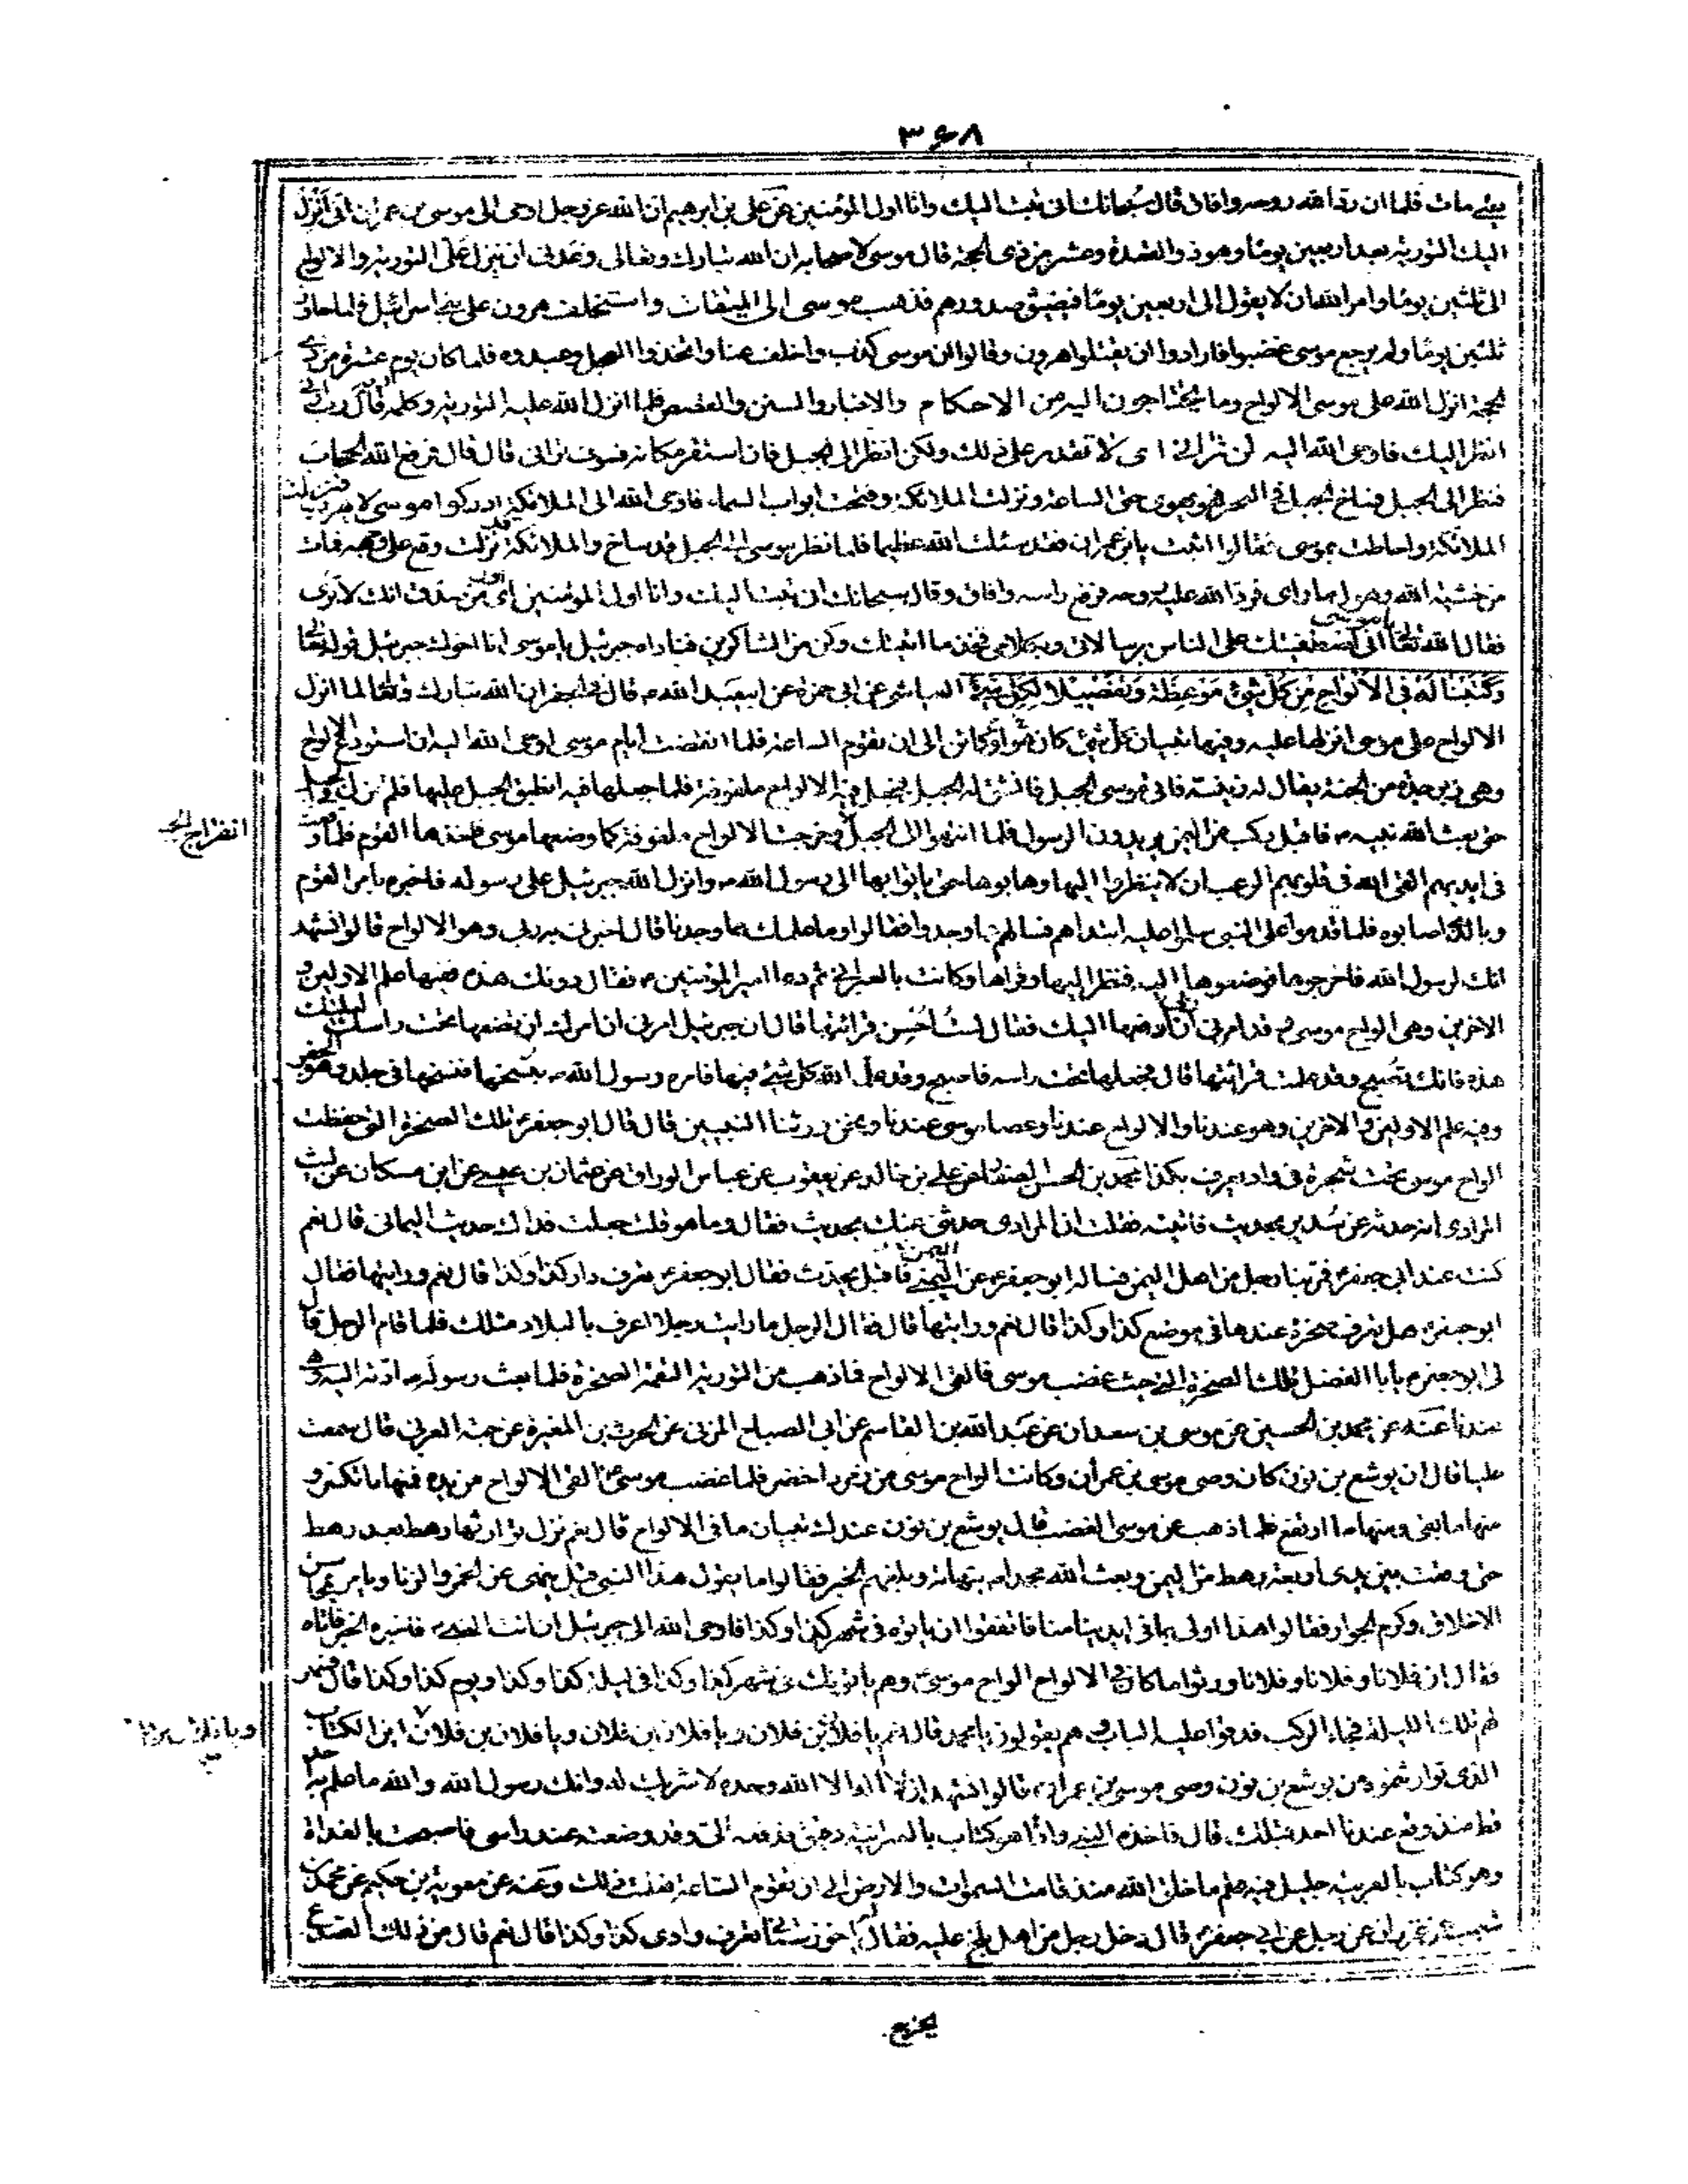 ۳۶۸
يعني مات فلما ان ردّ الله روحه وافاق قال سُبحانك اني تبت اليك وانا اول المؤمنين عَن علي بن ابرهيم ان الله عز وجل اوحى الى موسى بن عمران اني اَنزل
اليك التورية بعد اربعين يومًا وهو ذو القعدة وعشر من ذي الحجة قال موسى لاصحابه ان الله تبارك وتعالى وعدني ان ينزل عليّ التورية والالواح
الى ثلثين يومًا وامر الله ان لا يقول الى اربعين يومًا فيضيق صدورهم فذهب موسى الى الميقات واستخلف هرون على بني اسرائيل فلما جاوز
ثلثين يومًا ولم يرجع موسى غضبوا فارادوا ان يقتلوا هرون وقالوا ان موسى كذب واخلف منا واتخذوا العجل وعبدوه فلما كان يوم عشرة من ذي
الحجة انزل الله على موسى الالواح وما يحتاجون اليه من الاحكام والاخبار والسنن والقصص فلما انزل الله عليه التورية وكلمه قال رب ارني
انظر اليك فاوحى الله اليه لن تراني اي لا تقدر على ذلك ولكن انظر الى الجبل فان استقر مكانه فسوف تراني قال قال فرفع الله الحجاب
فنظر الى الجبل فساخ الجبل في البحر فهو يهوى حتى الساعة ونزلت الملائكة وفتحت ابواب السماء فاوحى الله الى الملائكة ادركوا موسى لا يهرب فنزلت
الملائكة واحاطت بموسى فقالوا اثبت يا بن عمران فقد سئلت الله عظيما فلما نظر موسى الى الجبل قد ساخ والملائكة قد نزلت وقع على وجهه فمات
من خشية الله وهول ما راى فردّ الله عليه روحه فرفع راسه وافاق وقال سبحانك ان تبت اليك وانا اول المؤمنين اي اول من صدق انك لا ترى
فقال الله تعالى يا موسى اني اصطفيتك على الناس برسالاتي وبكلامي فخذ ما اتيتك وكن من الشاكرين فناداه جبرئيل يا موسى انا اخوك جبرئيل قوله تعالى
وَكَتَبْنَا لَهُ فِي الْاَلْوَاحِ مِنْ كُلِّ شَيْءٍ مَوْعِظَةً وَتَفْصِيلًا لِكُلِّ شَيْءٍ العياشي عن ابي حمزة عن ابي عبد الله ع قال في الجفر ان الله تبارك وتعالى لما انزل
الالواح على موسى انزلها عليه وفيها تبيان كل شئ كان هو او كائن الى ان تقوم الساعة فلما انقضت ايام موسى اوحى الله اليه ان استودع الالواح
وهي زبرجدة من الجنة يقال له زينة فاتى موسى الجبل فانشق له الجبل فجعل فيه الالواح ملفوفة فلما جعلها فيه انطبق الجبل عليها فلم تزل في الجبل
حتى بعث الله نبيه ص فاقبل ركب من اليمن يريدون الرسول فلما انتهوا الى الجبل وخرجت الالواح ملفوفة كما وضعها موسى فاخذها القوم فلما وقعت
انفراج الجبل
في ايديهم القى الله في قلوبهم الرعب ان لا ينظروا اليها وهابوها حتى ياتوا بها الى رسول الله ص وانزل الله جبرئيل على رسوله فاخبره بامر القوم
وبالذي اصابوه فلما قدموا على النبي سلموا عليه ابتداهم فسالهم عما وجدوا فقالوا وما علمك بما وجدنا قال اخبرني به ربي وهو الالواح قالوا نشهد
انك لرسول الله فاخرجوها فوضعوها اليه فنظر اليها وقراها وكانت بالعبراني ثم دعا امير المؤمنين ع فقال دونك هذه ففيها علم الاولين و
الاخرين وهي الواح موسى ع قد امرني ربي ان ادفعها اليك فقال لستُ اُحسن قرائتها قال ان جبرئيل امرني ان امرك ان تضعها تحت راسك ليلتك
هذه فانك تصبح وقد علمت قرائتها قال فجعلها تحت راسه فاصبح وقد علمه الله كل شئ فيها فامره رسول الله ص بنسخها فنسخها في جلد وهو الجفر
وفيه علم الاولين والاخرين وهو عندنا والالواح عندنا وعصا موسى عندنا ونحن ورثنا النبيين قال قال ابو جعفر ع تلك الصخرة التي حفظت
الواح موسى تحت شجرة في واد يعرف بكذا محمد بن الحسن الصفار عن علي بن خالد عن يعقوب عن عباس الوراق عن عثمان بن عيسى عن ابن مسكان عن ليث
المرادي انه حدثه عن سدير بحديث فاتيته فقلت ان المرادي حدثني عنك بحديث فقال وما هو قلت جعلت فداك حديث اليماني قال نعم
كنت عند ابي جعفر ع فمر بنا رجل من اهل اليمن فساله ابو جعفر ع عن اليمن فاقبل يحدث فقال ابو جعفر ع تعرف دار كذا وكذا قال نعم ورايتها فقال
ابو جعفر ع هل تعرف صخرة عندها في موضع كذا وكذا قال نعم ورايتها قال فقال الرجل ما رايت رجلا اعرف بالبلاد مثلك فلما قام الرجل قال
لي ابو جعفر ع يا ابا الفضل تلك الصخرة التي حيث غضب موسى فالقى الالواح فما ذهب من التورية التقمته الصخرة فلما بعث رسوله ص ادته اليه وهي
عندنا عَنه عن محمد بن الحسين عن موسى بن سعدان عن عبد الله بن القاسم عن ابي الصباح المزني عن الحرث بن المغيرة عن حبة العرني قال سمعت
عليا قال ان يوشع بن نون كان وصي موسى بن عمران وكانت الواح موسى من زمرد اخضر فلما غضب موسى ع القى الالواح من يده فمنها ما تكسر و
منها ما بقى ومنها ما ارتفع فلما ذهب عن موسى الغضب قال يوشع بن نون عندك تبيان ما في الالواح قال نعم فلم نزل يتوارثها رهط بعد رهط
حتى وقعت بين يدي اربعة رهط من اليمن وبعث الله محمدا ص بتهامة وبلغهم الخبر فقالوا ما يقول هذا النبي قيل ينهى عن الخمر والزنا ويامر بمحاسن
الاخلاق وكرم الجوار فقالوا هذا اولى بما في ايدينا منا فاتفقوا ان ياتوه في شهر كذا وكذا فاوحى الله الى جبرئيل ان ائت النبي ص فاخبره الخبر فاتاه
فقال ان فلانا وفلانا وفلانا ورثوا ما كان في الالواح الواح موسى ع وهم ياتونك في شهر كذا وكذا في ليلة كذا وكذا ويوم كذا وكذا قال فسهر
لهم تلك الليلة فجاء الركب فدقوا عليه الباب وهم يقولون يا محمد قال نعم يا فلان بن فلان ويا فلان بن فلان ويا فلان بن فلان اين الكتاب
الذي توارثتموه من يوشع بن نون وصي موسى بن عمران ع قالوا نشهد ان لا اله الا الله وحده لا شريك له وانك رسول الله والله ما علم به احد
قط منذ وقع عندنا احد قبلك قال فاخذه النبي واذا هو كتاب بالعبرانية دقيق فدفعه الي وقد وضعته عند راسي فاصبحت بالغداة
وهو كتاب بالعربية جليل فيه علم ما خلق الله منذ قامت السموات والارض الى ان تقوم الساعة فعلمت ذلك وعَنه عن معوية بن حكيم عن محمد بن
عن رجل عن ابي جعفر ع قال دخل رجل من اهل بلخ عليه فقال يا خراساني تعرف وادي كذا وكذا قال نعم قال من ذلك الصدع
يخرج